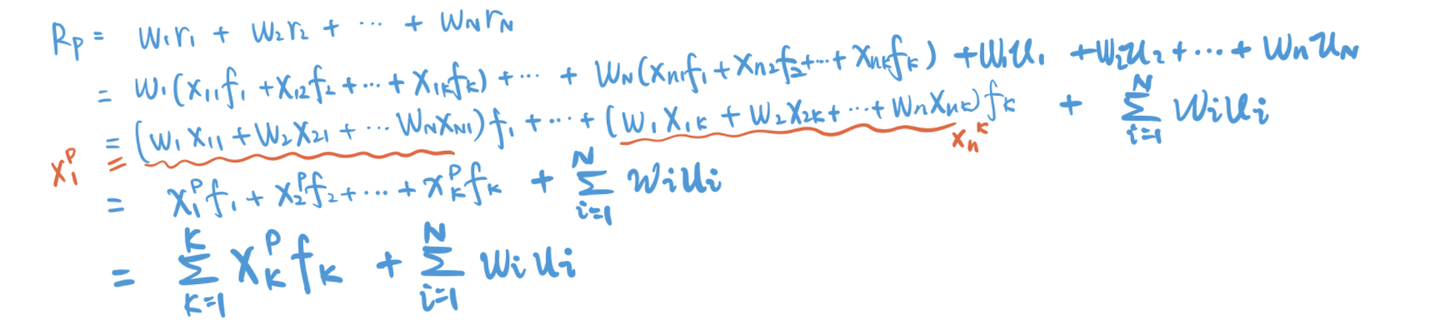 R_P = W_1 r_1 + W_2 r_2 + ⋯ + W_N r_N
= W_1(X_{11}f_1 + X_{12}f_2 + ⋯ + X_{1K}f_K) + ⋯ + W_N(X_{n1}f_1 + X_{n2}f_2 + ⋯ + X_{nK}f_K) + W_1 u_1 + W_2 u_2 + ⋯ + W_n u_N
= (W_1 X_{11} + W_2 X_{21} + ⋯ W_N X_{N1})f_1 + ⋯ + (W_1 X_{1K} + W_2 X_{2K} + ⋯ + W_n X_{nK})f_K + ∑_{i=1}^{N} W_i u_i
X_1^P = X_n^K
= X_1^P f_1 + X_2^P f_2 + ⋯ + X_K^P f_K + ∑_{i=1}^{N} W_i u_i
= ∑_{K=1}^{K} X_K^P f_K + ∑_{i=1}^{N} W_i u_i